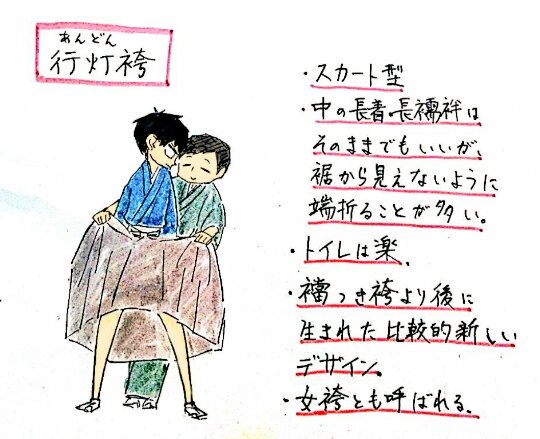 あんどん
行灯袴
・スカート型
・中の長着・長襦袢は
そのままでもいいが、
裾から見えないように
端折ることが多い。
・トイレは楽。
・襠つき袴より後に
生まれた比較的新しい
デザイン。
・女袴とも呼ばれる。